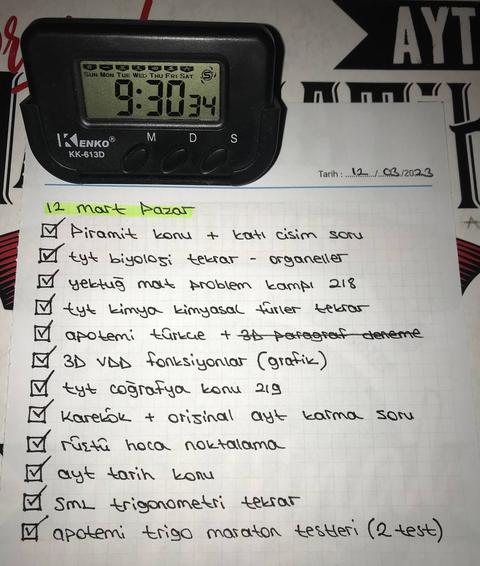 AYT
SUN MON TUE WED THU FRI SAT
9:30 34
KENKO®
KK-613D
M D S
Tarih : 12 / 03 / 2023
12 mart Pazar
Piramit konu + katı cisim soru
tyt biyoloji tekrar - organeller
yektuğ mat problem kampı 218
tyt kimya kimyasal türler tekrar
apotemi türkçe + 3D paragraf deneme
3D VDD fonksiyonlar (grafik)
tyt coğrafya konu 219
Karekök + orijinal ayt karma soru
rüştü hoca noktalama
ayt tarih konu
SML trigonometri tekrar
apotemi trigo maraton testleri (2 test)